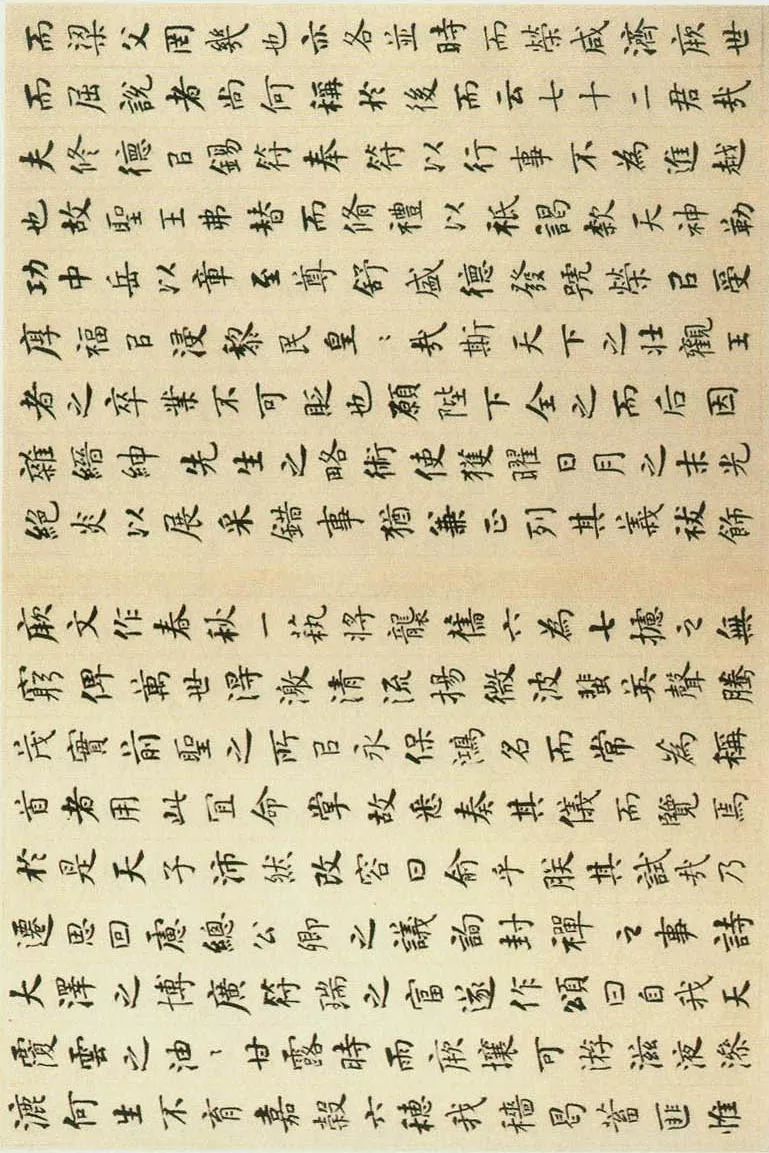 而梁父罔幾也亦各並時而榮咸濟厥世
而屈說者尚何稱於後而云七十二君哉
夫修德㠯錫符奉符以行事不為進越
也故聖王弗替而脩禮以祗謁欵天神勒
功中岳以章至尊舒盛德發號榮㠯受
厚福㠯浸黎民皇〻哉斯天下之壯觀王
者之卒業不可貶也願陛下全之而后因
雜縉紳先生之略術使獲曜日月之末光
絕炎以展采錯事猶兼正列其義祓飾
厥文作春秋一蓺將襲舊六為七攄之無
窮俾萬世得激清流揚微波蜚英聲騰
茂實前聖之所㠯永保鴻名而常為稱
首者用此宜命掌故悉奏其儀而覽焉
於是天子沛然改容曰俞乎朕其試哉乃
遷思回慮總公卿之議詢封禪之事詩
大澤之博廣符瑞之富遂作頌曰自我天
覆雲之油〻甘露時雨厥攘可游滋液滲
漉何生不育嘉穀六穗我穡曷蓄匪惟